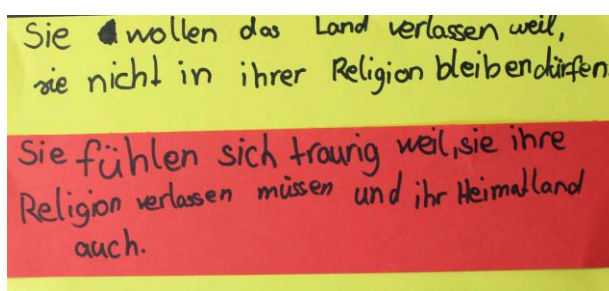 Sie wollen das Land verlassen weil,
sie nicht in ihrer Religion bleiben dürfen
Sie fühlen sich traurig weil, sie ihre
Religion verlassen müssen und ihr Heimatland
auch.